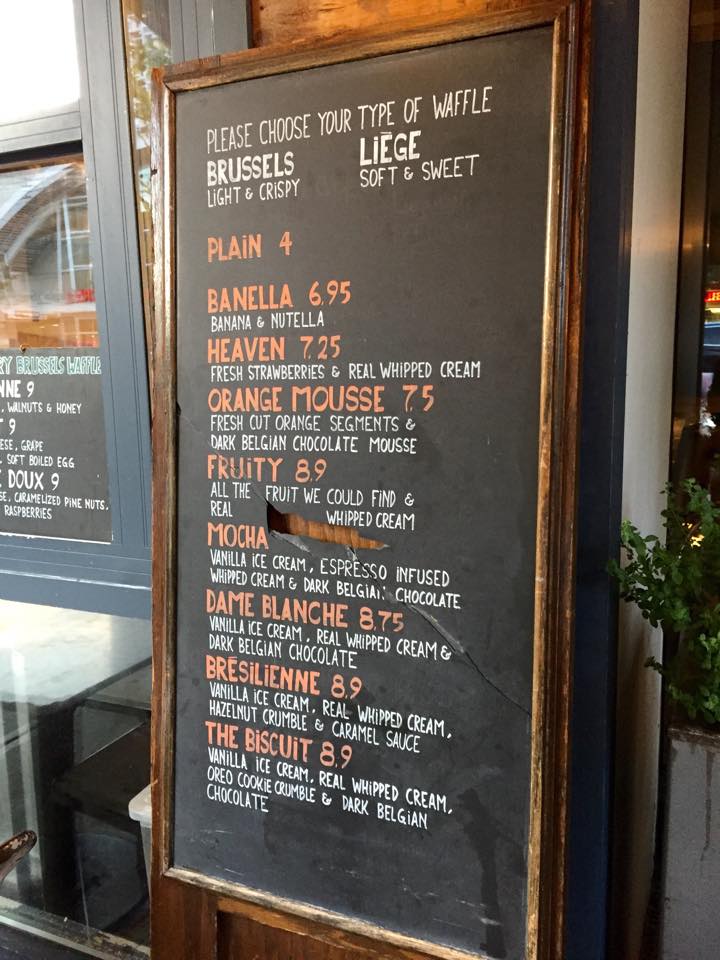 PLEASE CHOOSE YOUR TYPE OF WAFFLE
BRUSSELS
LIGHT & CRISPY
LIÈGE
SOFT & SWEET
PLAIN 4
BANELLA 6.95
BANANA & NUTELLA
HEAVEN 7.25
FRESH STRAWBERRIES & REAL WHIPPED CREAM
ORANGE MOUSSE 7.5
FRESH CUT ORANGE SEGMENTS &
DARK BELGIAN CHOCOLATE MOUSSE
FRUITY 8.9
ALL THE FRUIT WE COULD FIND &
REAL WHIPPED CREAM
MOCHA
VANILLA ICE CREAM, ESPRESSO INFUSED
WHIPPED CREAM & DARK BELGIAN CHOCOLATE
DAME BLANCHE 8.75
VANILLA ICE CREAM, REAL WHIPPED CREAM &
DARK BELGIAN CHOCOLATE
BRÉSILIENNE 8.9
VANILLA ICE CREAM, REAL WHIPPED CREAM,
HAZELNUT CRUMBLE & CARAMEL SAUCE
THE BISCUIT 8.9
VANILLA ICE CREAM, REAL WHIPPED CREAM,
OREO COOKIE CRUMBLE & DARK BELGIAN
CHOCOLATE
BRUSSELS WAFFLE
9
, WALNUTS & HONEY
9
, GRAPE
SOFT BOILED EGG
DOUX 9
, CARAMELIZED PINE NUTS,
RASPBERRIES